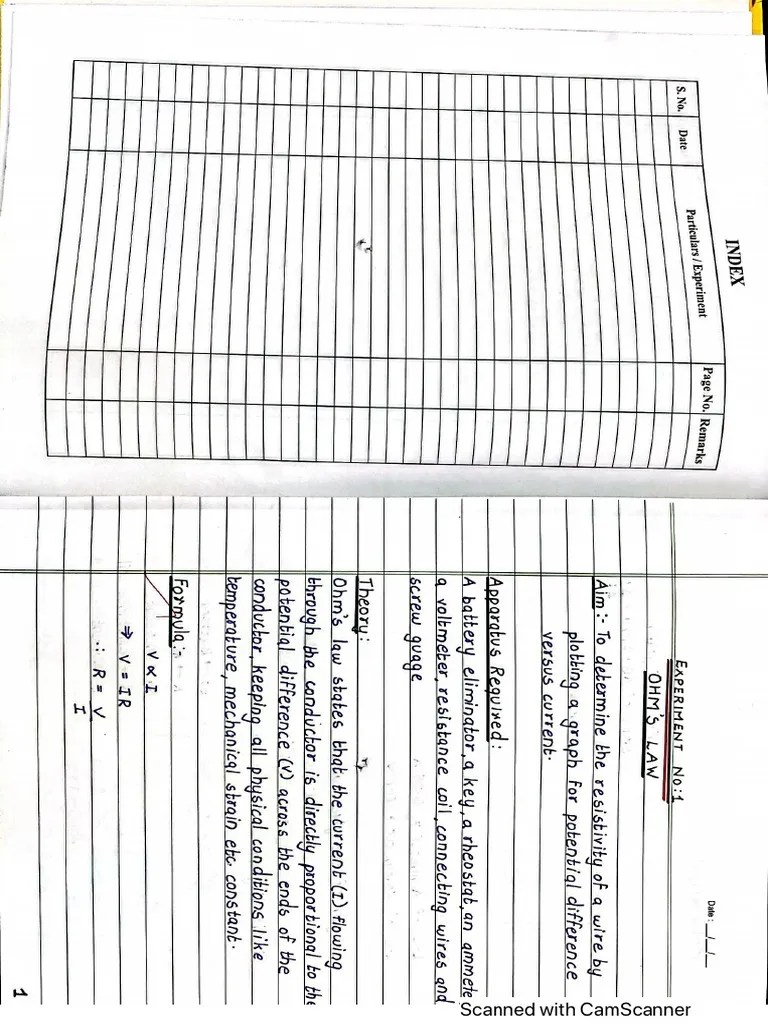 INDEX
S. No. Date Particulars / Experiment Page No. Remarks
Date : __/__/__
EXPERIMENT NO:1
OHM'S LAW
Aim :- To determine the resistivity of a wire by
plotting a graph for potential difference
versus current.
Apparatus Required :
A battery eliminator, a key, a rheostat, an ammete
a voltmeter, resistance coil, connecting wires and
screw guage
Theory :
Ohm's law states that the current (I) flowing
through the conductor is directly proportional to the
potential difference (V) across the ends of the
conductor, keeping all physical conditions like
temperature, mechanical strain etc constant.
Formula :-
V ∝ I
⇒ V = IR
∴ R = V
I
1
Scanned with CamScanner